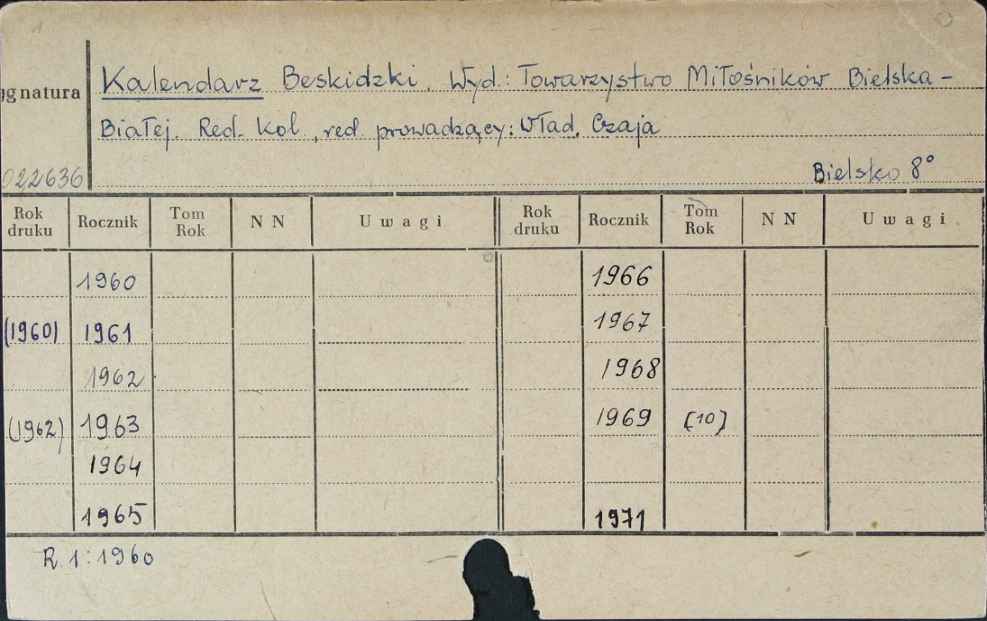 Kalendarz Beskidzki. Wyd.: Towarzystwo Miłośników Bielska-
ygnatura
Białej. Red. Kol., red. prowadzący: Wład. Czaja
022636
Bielsko 8°
Rok druku Rocznik Tom Rok N N Uwagi Rok druku Rocznik Tom Rok N N Uwagi
1960 1966
(1960) 1961 1967
1962 1968
(1962) 1963 1969 [10]
1964
1965 1971
R. 1: 1960